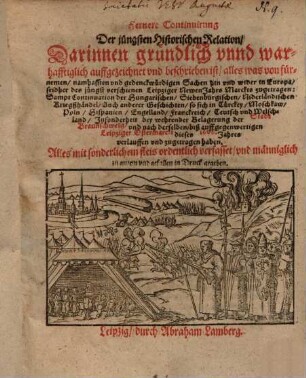 Societatis Jesu Augustæ
Fernere Continuirung
Der jüngsten Historischen Relation/
Darinnen gründlich vnnd war-
hafftiglich auffgezeichnet vnd beschrieben ist/ alles was von für-
nemen/ namhafften vnd gedenckwirdigen Sachen hin vnd wider in Europa/
seidher des jüngst verschienen Leipziger Newen Jahrs Marckts zugetragen:
Sampt Continuation der Hungarischen/ Siebenbürgischen/ Niderländischen
Kriegshändel: Auch anderer Geschichten/ so sich in Türckey/ Moschkaw/
Poln/ Hispanien/ Engelland/ Franckreich/ Teutsch vnd Welsch-
land/ Insonderheit der wehrender Belagerung der Stadt
Braunschweig/ vnd nach derselben biß auff gegenwertigen
Leipziger Ostermarckt dieses Jahres
verlauffen vnd zugetragen haben,
Alles mit sonderlichem fleis ordentlich verfasset/ vnd männiglich
in Druck
Leipzig/ durch Abraham Lamberg.